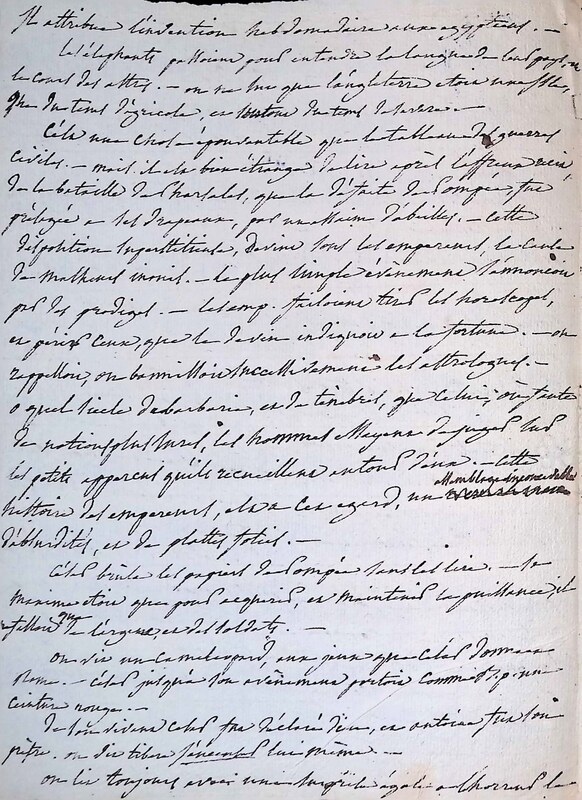 Il attribue l'invention hebdomadaire aux egyptiens. —
Les éléphants passoient pour entendre la langue de leur pays, et
le cours des astres. — on ne sut que l'angleterre etoit une isle,
que du tems d'agricole, et surtout du tems de severe. —
C'est une chose épouvantable que le tableau des guerres
civiles. — mais il est bien étrange de lire après l'affreux récit,
de la bataille de Pharsale, que la defaite de Pompée, fut
présagée à ses drapeaux, par un essaim d'abeilles. — cette
disposition superstitieuse, devint sous les empereurs, la cause
de malheurs inouis. — le plus simple évènement s'annoncoit
par des prodiges. — les emp. faisoient tirer les horoscopes,
et périr ceux, que le devin indiquoit à la fortune. — on
rappelloit, on bannissoit successivement les astrologues. —
o quel siecle de barbarie, et de ténèbres, que celui, où faute
de notions plus sures, les hommes
les petits apperçus qu'ils recueillent autour d'eux. — cette
histoire des empereurs, est à cet égard, un
d'absurdités, et de plattes folies. —
César brûla les papiers de Pompée sans les lire. — sa
maxime etoit que pour acquerir, et maintenir la puissance, il
ne falloit que de l'argent et des soldats. —
on vit un cameleopard, aux jeux que César donna à
Rome. — César jusqu'à son avènement portoit comme
ceinture rouge. —
de son vivant César fut déclaré dieu, et antoine fut son
prêtre. on dit tibere lui même. —
on lit toujours avec une surprise égale à l'horreur la